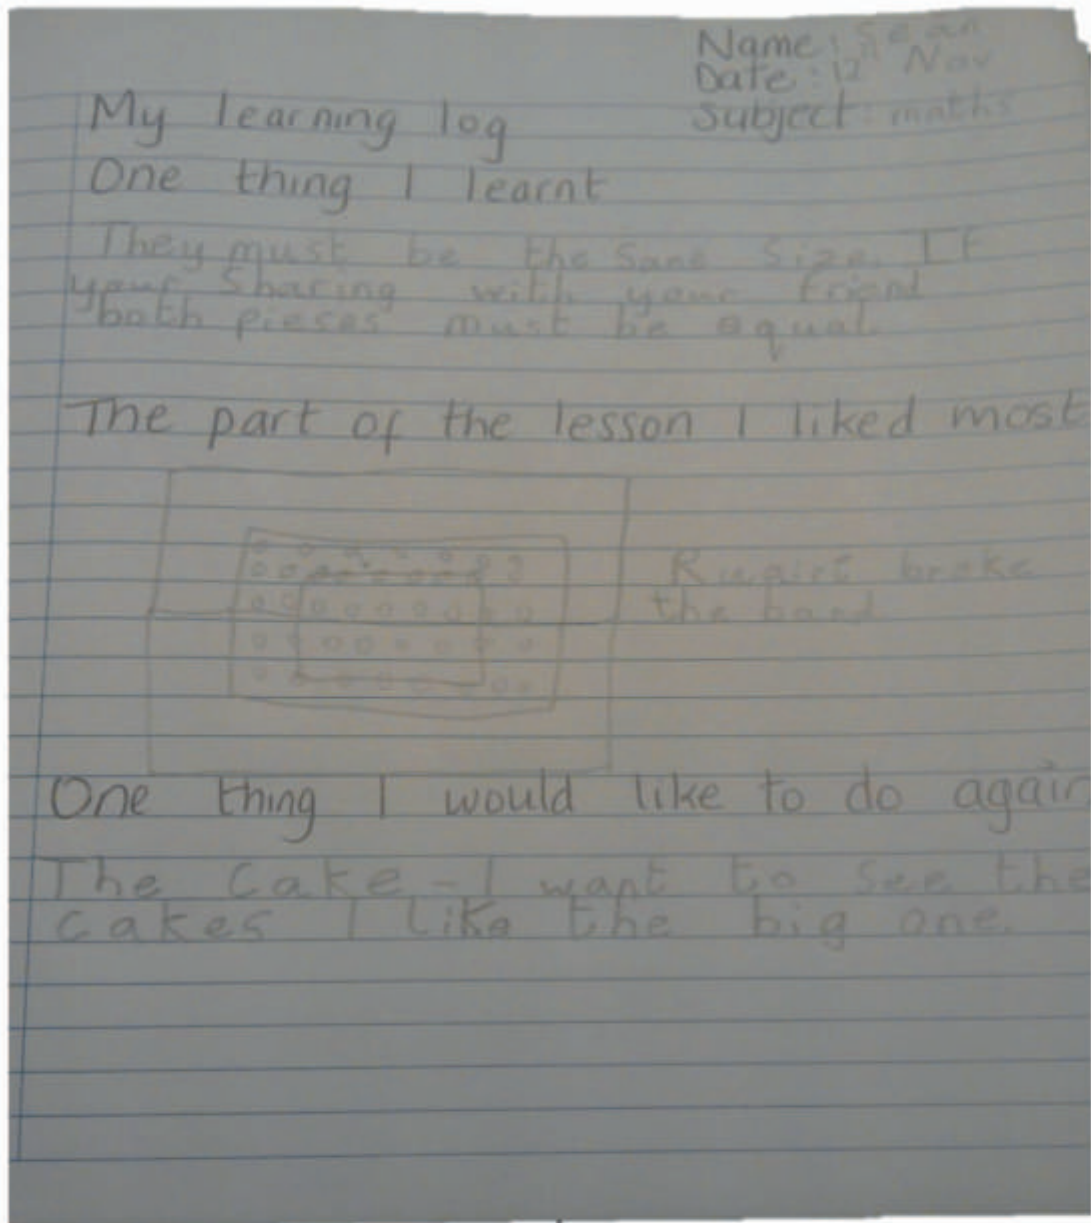 Name: Sean
Date: 12th Nov
Subject: maths
My learning log
One thing I learnt
They must be the same size. If
your sharing with your friend
both pieses must be equal.
The part of the lesson I liked most
broke
the band
One thing I would like to do again
The cake - I want to see the
cakes I like the big one.